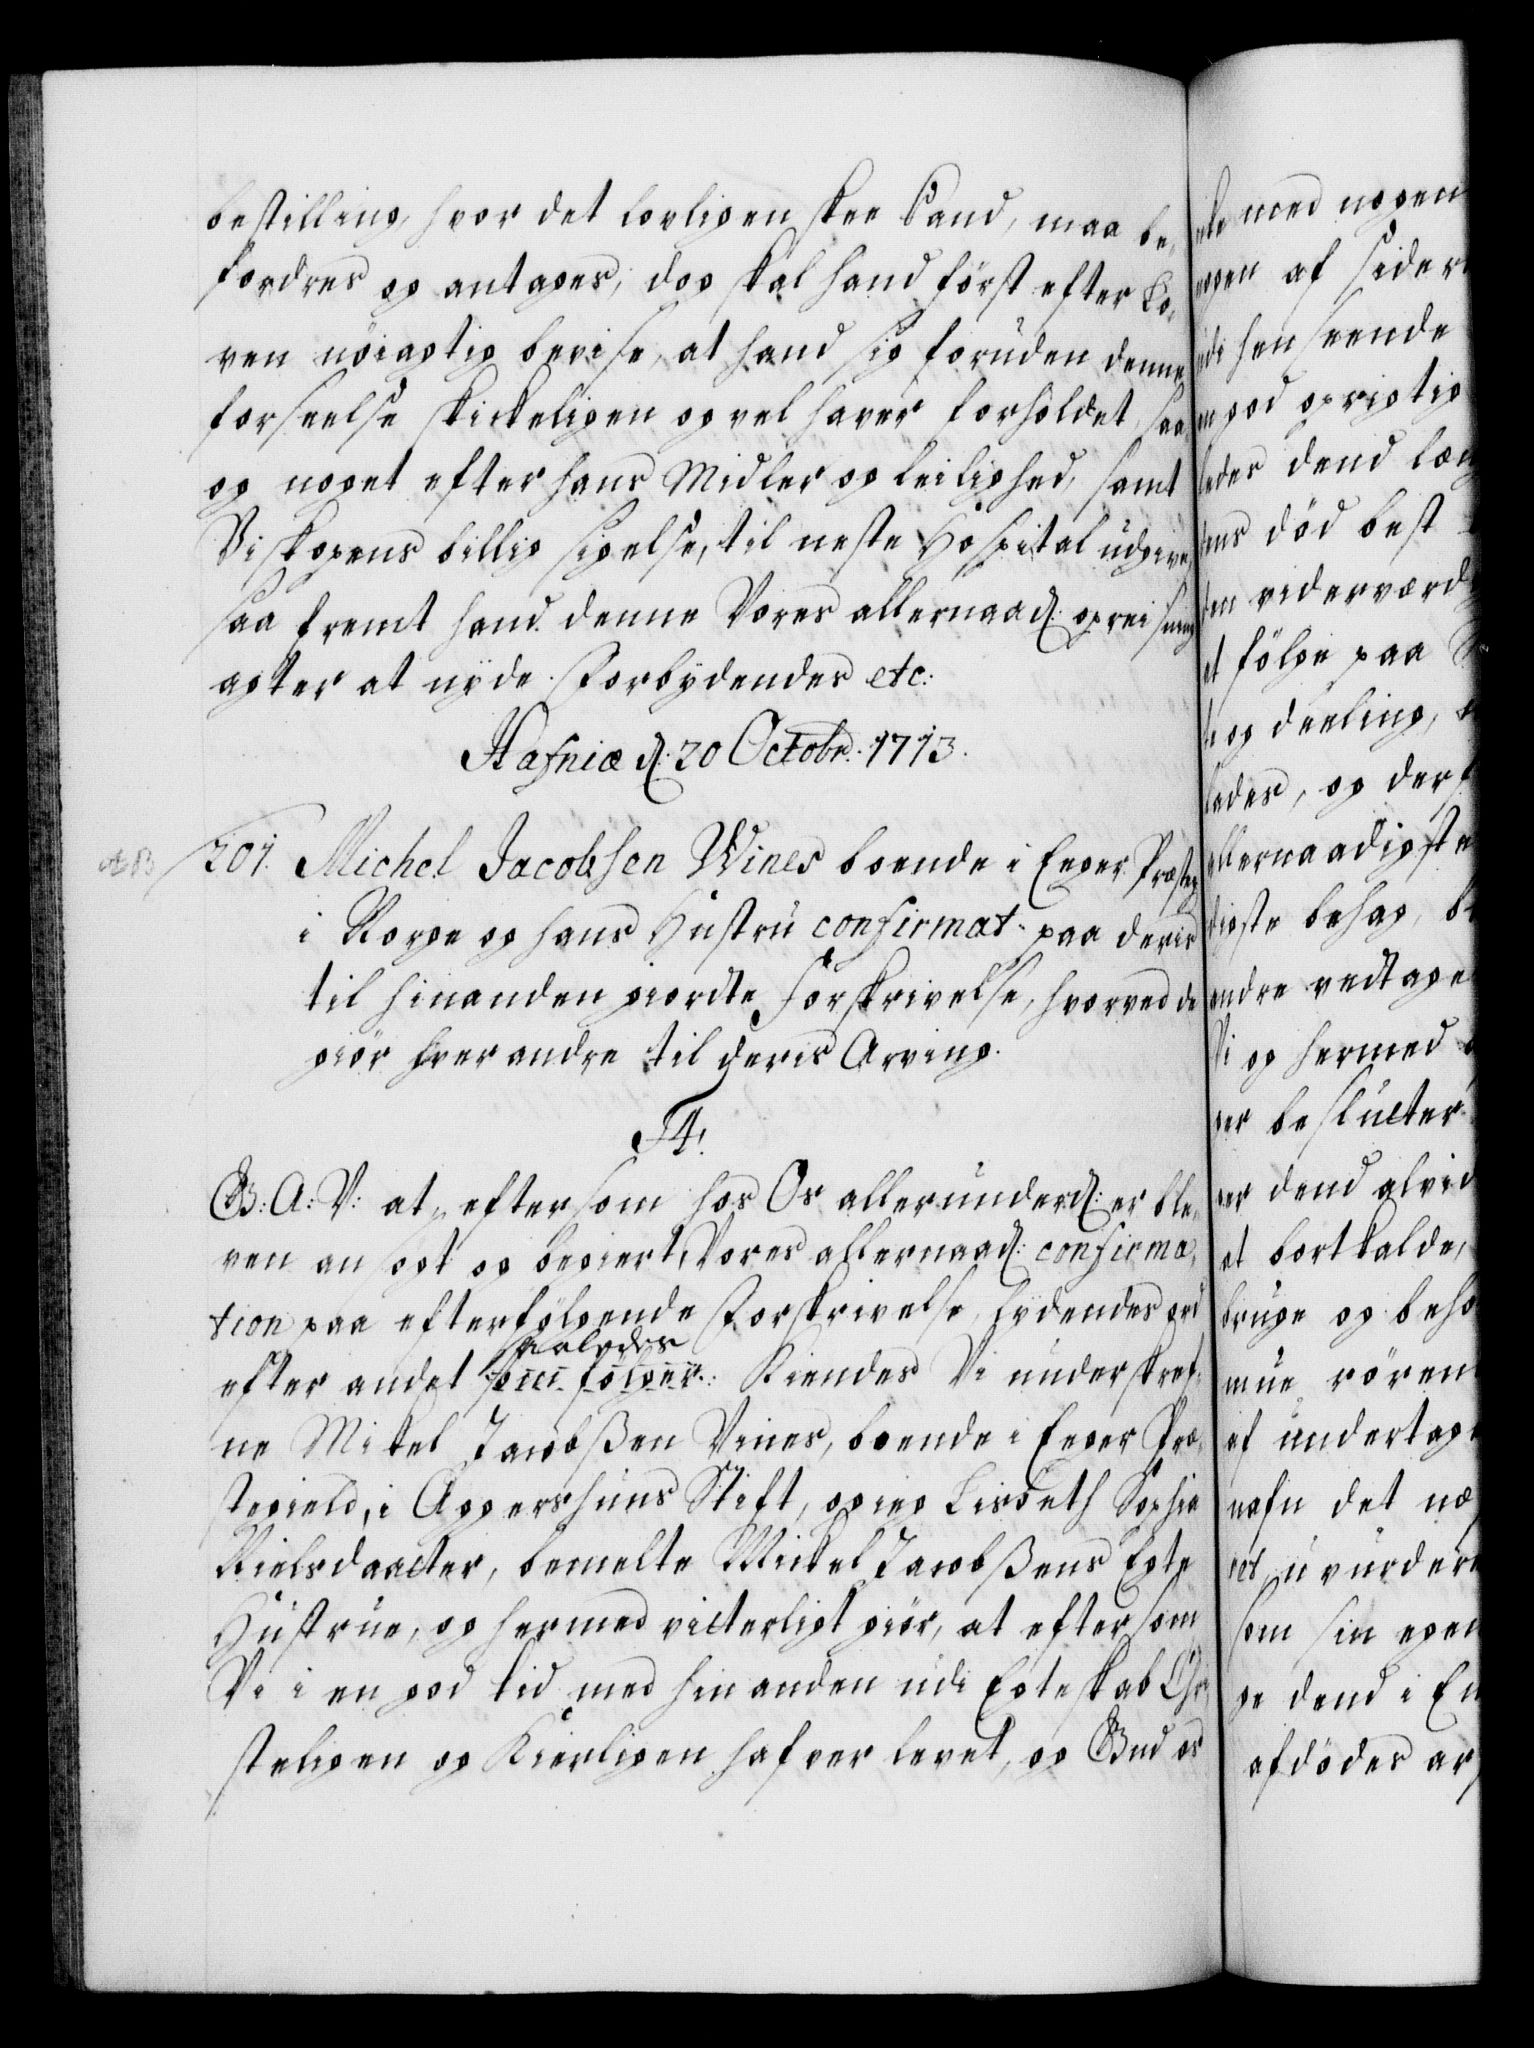 bestilling, hvor det lovligen skee kand, maa be-
fordres og antages, dog skal hand först efter Lo-
ven nöiagtig bevise, at hand sig foruden denne
forseelse skickeligen og vel haver forholdet, saa
og noget efter hans Midler og leilighed, samt
Biskopens billig sigelse, til neste Hospital udgive,
saa fremt hand denne Vores allernaad. opreisning
agter at nyde. Forbydendes etc:
Hafniæ d. 20 Octobr. 1713.
201. Michel Jacobsen Wines boende i Eger Præsteg
i Norge og hans Hustru confirmat. paa deris
til hinanden giordte Forskrivelse, hvorved de
giör hver andre til deris Arving.
F4.
G: A: V: at, eftersom hos Os allerunderd: er ble-
ven ansøgt og begiert, Vores allernaad: confirma-
tion paa efterfölgende Forskrivelse, lydendes ord
saaledes
efter andet som fölger: Kiendes Vi underskref-
ne Mikel Jacobßen Vines, boende i Eger Præ-
stegield, i Aggershuus Stift, og ieg Lisbeth Sophia
Nielsdaatter, bemelte Mickel Jacobßens Egte
Hustrue, og hermed vitterligt giör, at eftersom
Vi i en god tid med hinanden udi Egteskab Chri-
steligen og Kierligen hafver levet, og Gud os
med nogen
af sider
henseende
god oprigtig
dend læng
död best
viderværd
fölge paa
og deeling,
og der
allernaadigste
behag,
andre vedtage
og hermed
beslutter
dend alvid
at bortkalde,
bruge og beho
mue rören
af undertage
nafn det næ
uvurder
som sin egen
ge dend i En
afdödes ar